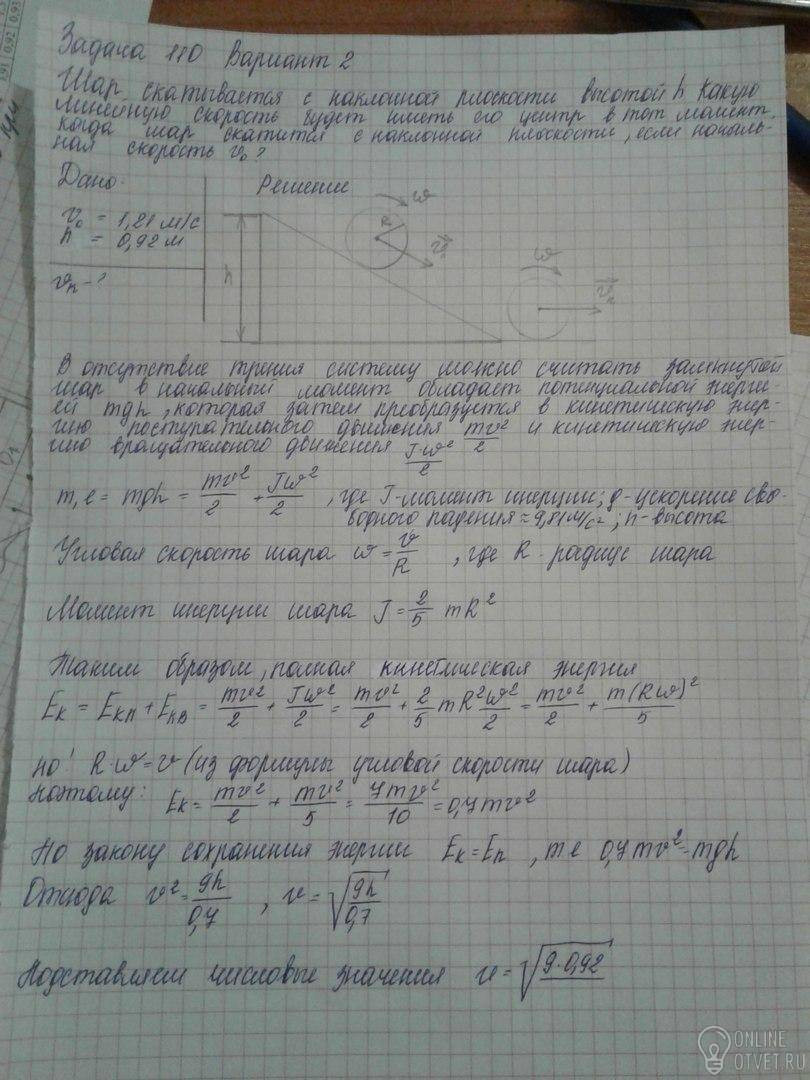 Задача 110 Вариант 2
Шар скатывается с наклонной плоскости высотой h какую
линейную скорость будет иметь его центр в тот момент,
когда шар скатится с наклонной плоскости, если началь-
ная скорость v₀?
Дано: Решение
v₀ = 1,21 м/с
h = 0,92 м
vк - ?
ω
R
v⃗₀
h
ω
v⃗к
В отсутствие трения систему можно считать замкнутой
шар в начальный момент обладает потициальной энерги-
ей mgh, которая затем преобразуется в кинетическую энер-
гию поступательного движения mv²/2 и кинетическую энер-
гию вращательного движения Jω²/2
т,е = mgh = mv²/2 + Jω²/2, где J-момент инерции; g-ускорение сво-
бодного падения ≈ 9,81 м/с²; h-высота
Угловая скорость шара ω = v/R, где R - радиус шара
Момент инерции шара J = 2/5 mR²
Таким образом, полная кинетическая энергия
Eк = Eкп + Eкв = mv²/2 + Jω²/2 = mv²/2 + 2/5 mR²ω²/2 = mv²/2 + m(Rω)²/5
но! R·ω = v (из формулы угловой скорости шара)
поэтому: Eк = mv²/2 + mv²/5 = 7mv²/10 = 0,7mv²
По закону сохранения энергии Eк = Eп, т е 0,7mv² = mgh
Отсюда v² = gh/0,7, v = √(gh/0,7)
Подставляем числовые значения v = √(9·0,92
ONLINE
OTVET.RU